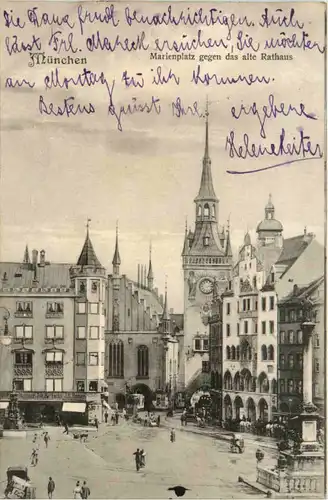 die Hana freudl benachrichtigen. Auch
lässt Frl. Mareck ersuchen, Sie möchten
am Montag zu ihr kommen.
Bestens grüsst Ihre ergebene
Helene Reiter
München
Marienplatz gegen das alte Rathaus